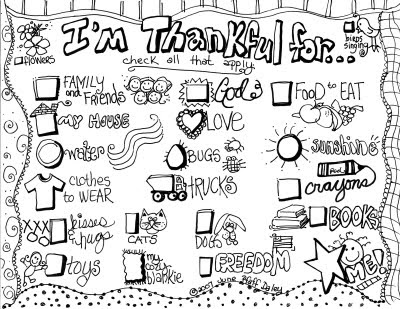 I'm Thankful for...
check all that apply:
flowers
birds singing
FAMILY and Friends
God
FOOD to EAT
MY HOUSE
LOVE
sunshine
water
BUGS
Red
clothes to WEAR
TRUCKS
crayons
XXX kisses & hugs
CATS
DOGS
BOOKS
toys
my cozy blankie
FREEDOM
ME!
© 2007 June Pfaff Daley